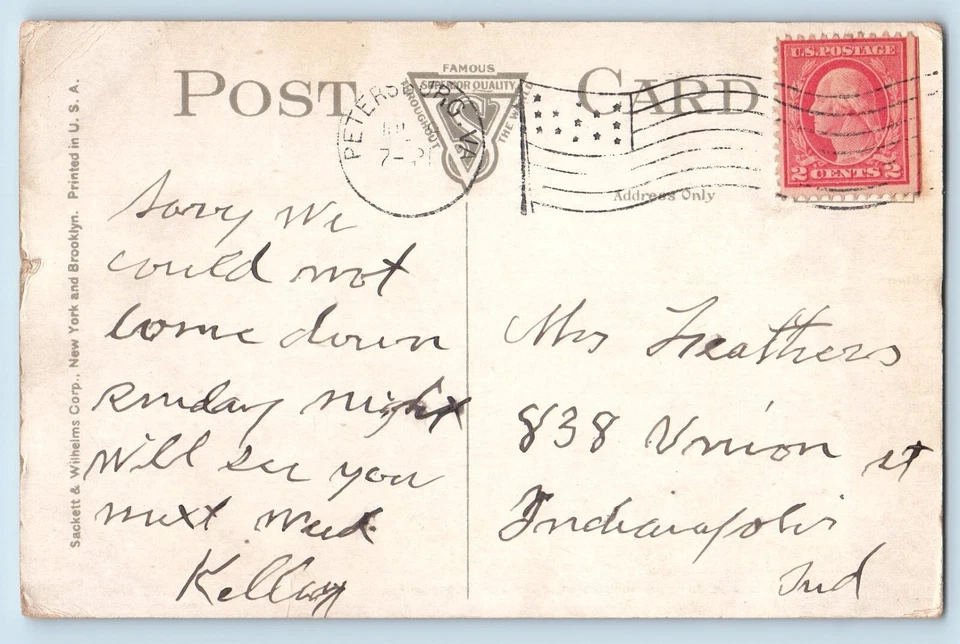 POST CARD
FAMOUS
SUPERIOR QUALITY
THROUGHOUT THE WORLD
PETERSBURG VA
7-
U.S. POSTAGE
2 CENTS 2
Address Only
Sackett & Wilhelms Corp., New York and Brooklyn. Printed in U. S. A.
Sorry We
could not
come down
Sunday night
Will see you
next Week
Mrs Feathers
838 Union st
Indianapolis
Ind